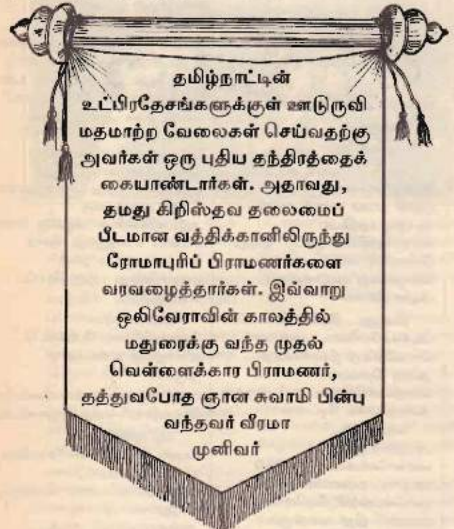 தமிழ்நாட்டின்
உட்பிரதேசங்களுக்குள் ஊடுருவி
மதமாற்ற வேலைகள் செய்வதற்கு
அவர்கள் ஒரு புதிய தந்திரத்தைக்
கையாண்டார்கள். அதாவது,
தமது கிறிஸ்தவ தலைமைப்
பீடமான வத்திக்கானிலிருந்து
ரோமாபுரிப் பிராமணர்களை
வரவழைத்தார்கள். இவ்வாறு
ஒலிவேராவின் காலத்தில்
மதுரைக்கு வந்த முதல்
வெள்ளைக்கார பிராமணர்,
தத்துவபோத ஞான சுவாமி பின்பு
வந்தவர் வீரமா
முனிவர்